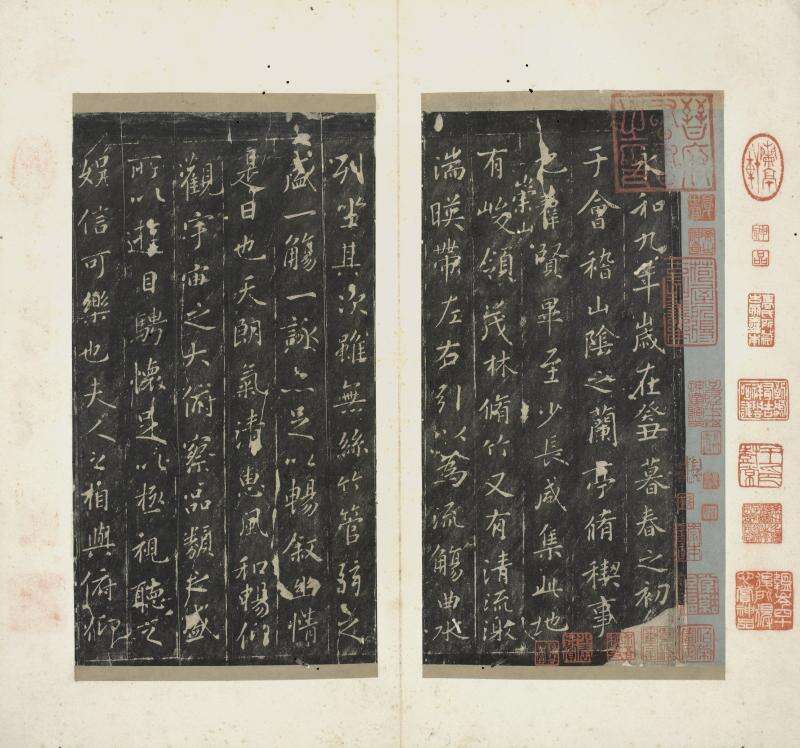 永和九年歲在癸丑暮春之初
于會稽山陰之蘭亭脩稧事
也羣賢畢至少長咸集此地
崇山
有峻領茂林脩竹又有清流激
湍暎帶左右引以為流觴曲水
列坐其次雖無絲竹管弦之
盛一觴一詠亦足以暢敘幽情
是日也天朗氣清惠風和暢仰
觀宇宙之大俯察品類之盛
所以遊目騁懷足以極視聽之
娛信可樂也夫人之相與俯仰
晉府書畫之印